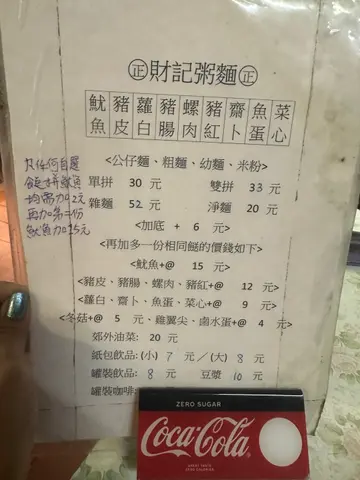 正 財記粥麵 正
魷魚 豬皮 蘿白 豬腸 螺肉 豬紅 齋卜 魚蛋 菜心
<公仔麵、粗麵、幼麵、米粉>
單拼 30 元 雙拼 33 元
雜麵 52 元 淨麵 20 元
<加底 + 6 元>
<再加多一份相同餸的價錢如下>
<魷魚+@ 15 元>
<豬皮、豬腸、螺肉、豬紅+@ 12 元>
<蘿白、齋卜、魚蛋、菜心+@ 9 元>
<冬菇+@ 5 元、雞翼尖、鹵水蛋+@ 4 元>
郊外油菜: 20 元
紙包飲品: (小) 7 元／(大) 8 元
罐裝飲品: 8 元 豆漿 10 元
罐裝咖啡:
凡任何自選
餸拼魷魚
均需加2元
再加第二份
魷魚加15元
ZERO SUGAR
Coca-Cola